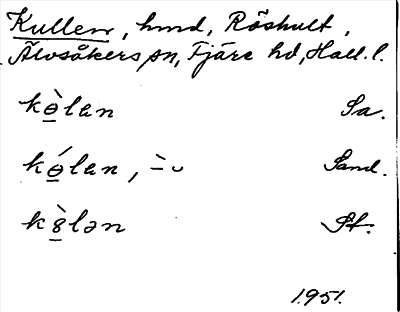 Kullen, hmd, Röshult,
Älvsåkers sn, Fjäre hd, Hall. l.
kɵ̀lan Sa.
kɵ́lan, –̀ ᴗ Sand.
k8̀lən St.
1951.